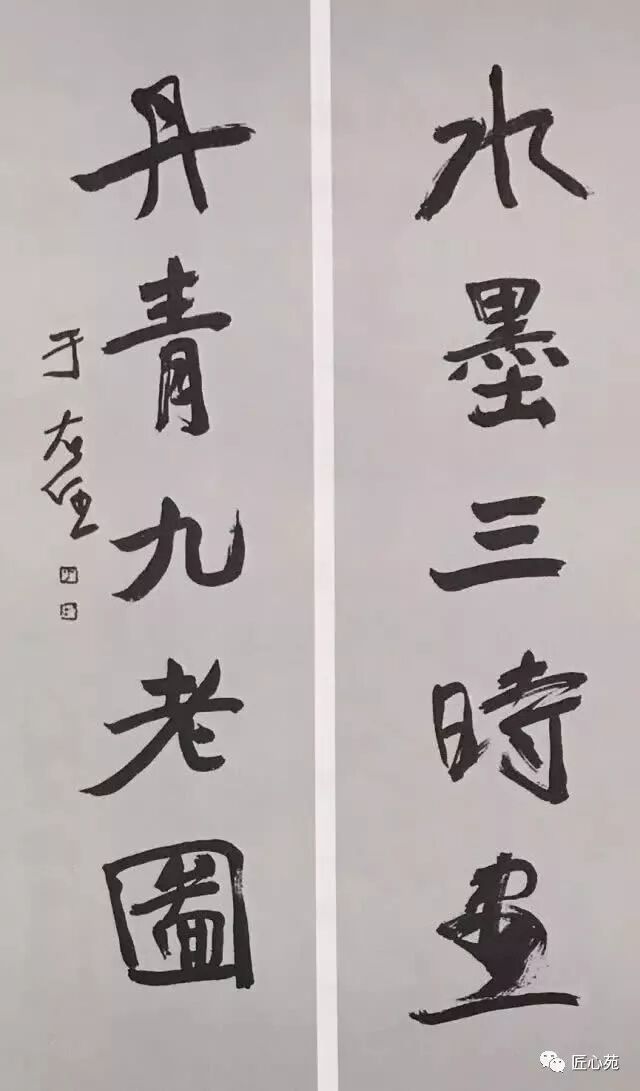 水墨三時畫
丹青九老圖
于右任
匠心苑